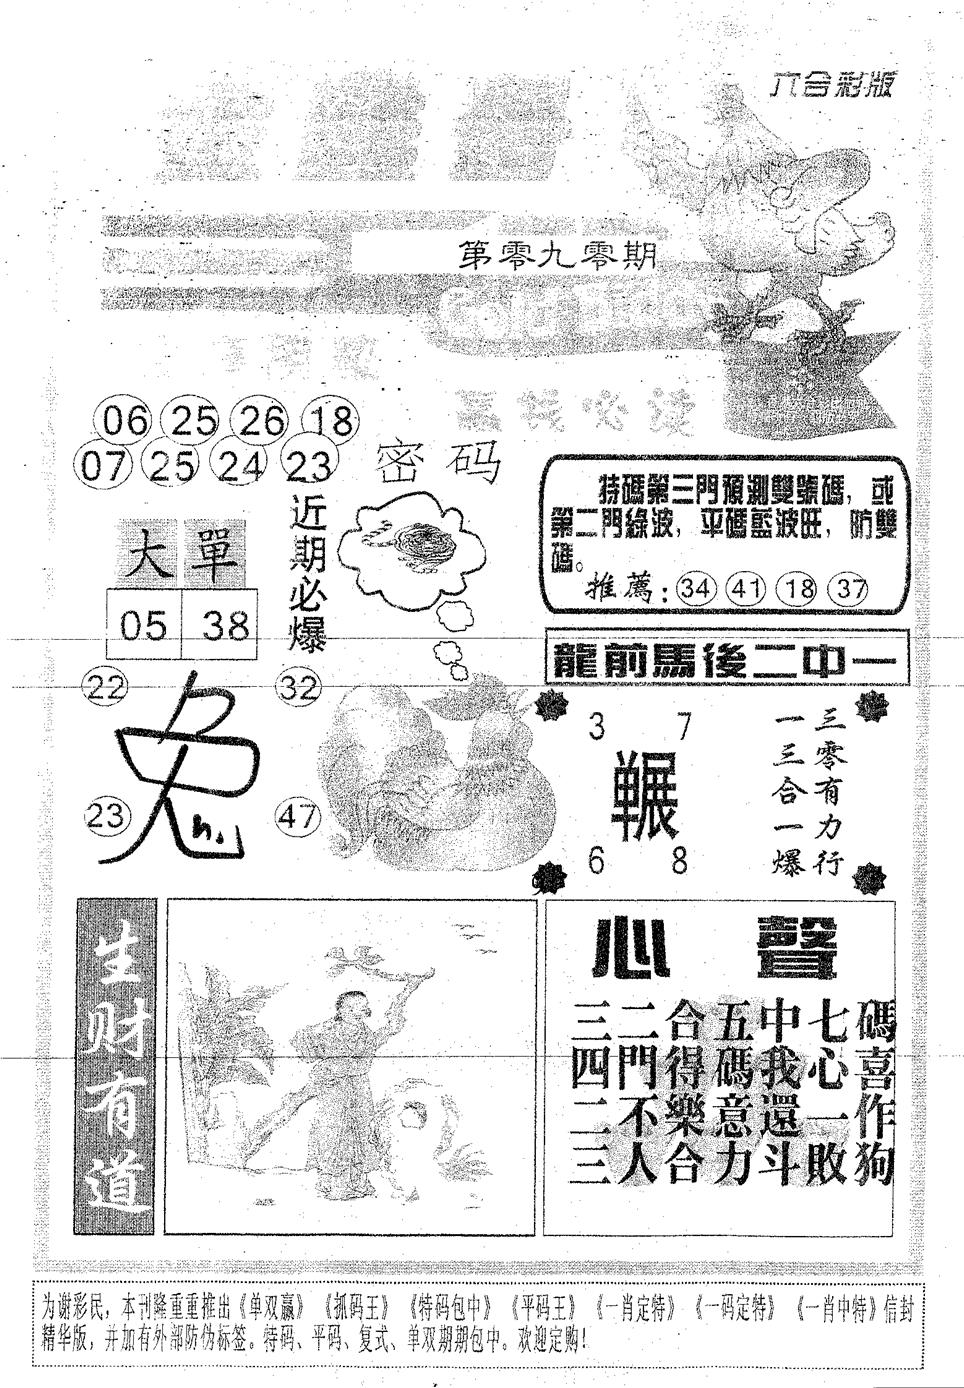 六合彩版
第零九零期
赢钱必读
06 25 26 18
07 25 24 23
密码
近期必爆
大單
05 38
特碼第三門預測雙號碼，或
第二門綠波，平碼藍波旺，防雙
碼。
推薦：34 41 18 37
龍前馬後二中一
22 32
兔
23 47
3 7
6 8
三零有力行
一三合一爆
生财有道
心聲
三二合五中七碼
四門得碼我心喜
二不樂意還一作
三人合力斗敗狗
为谢彩民，本刊隆重重推出《单双赢》《抓码王》《特码包中》《平码王》《一肖定特》《一码定特》《一肖中特》信封
精华版，并加有外部防伪标签。特码、平码、复式、单双期期包中。欢迎定购！